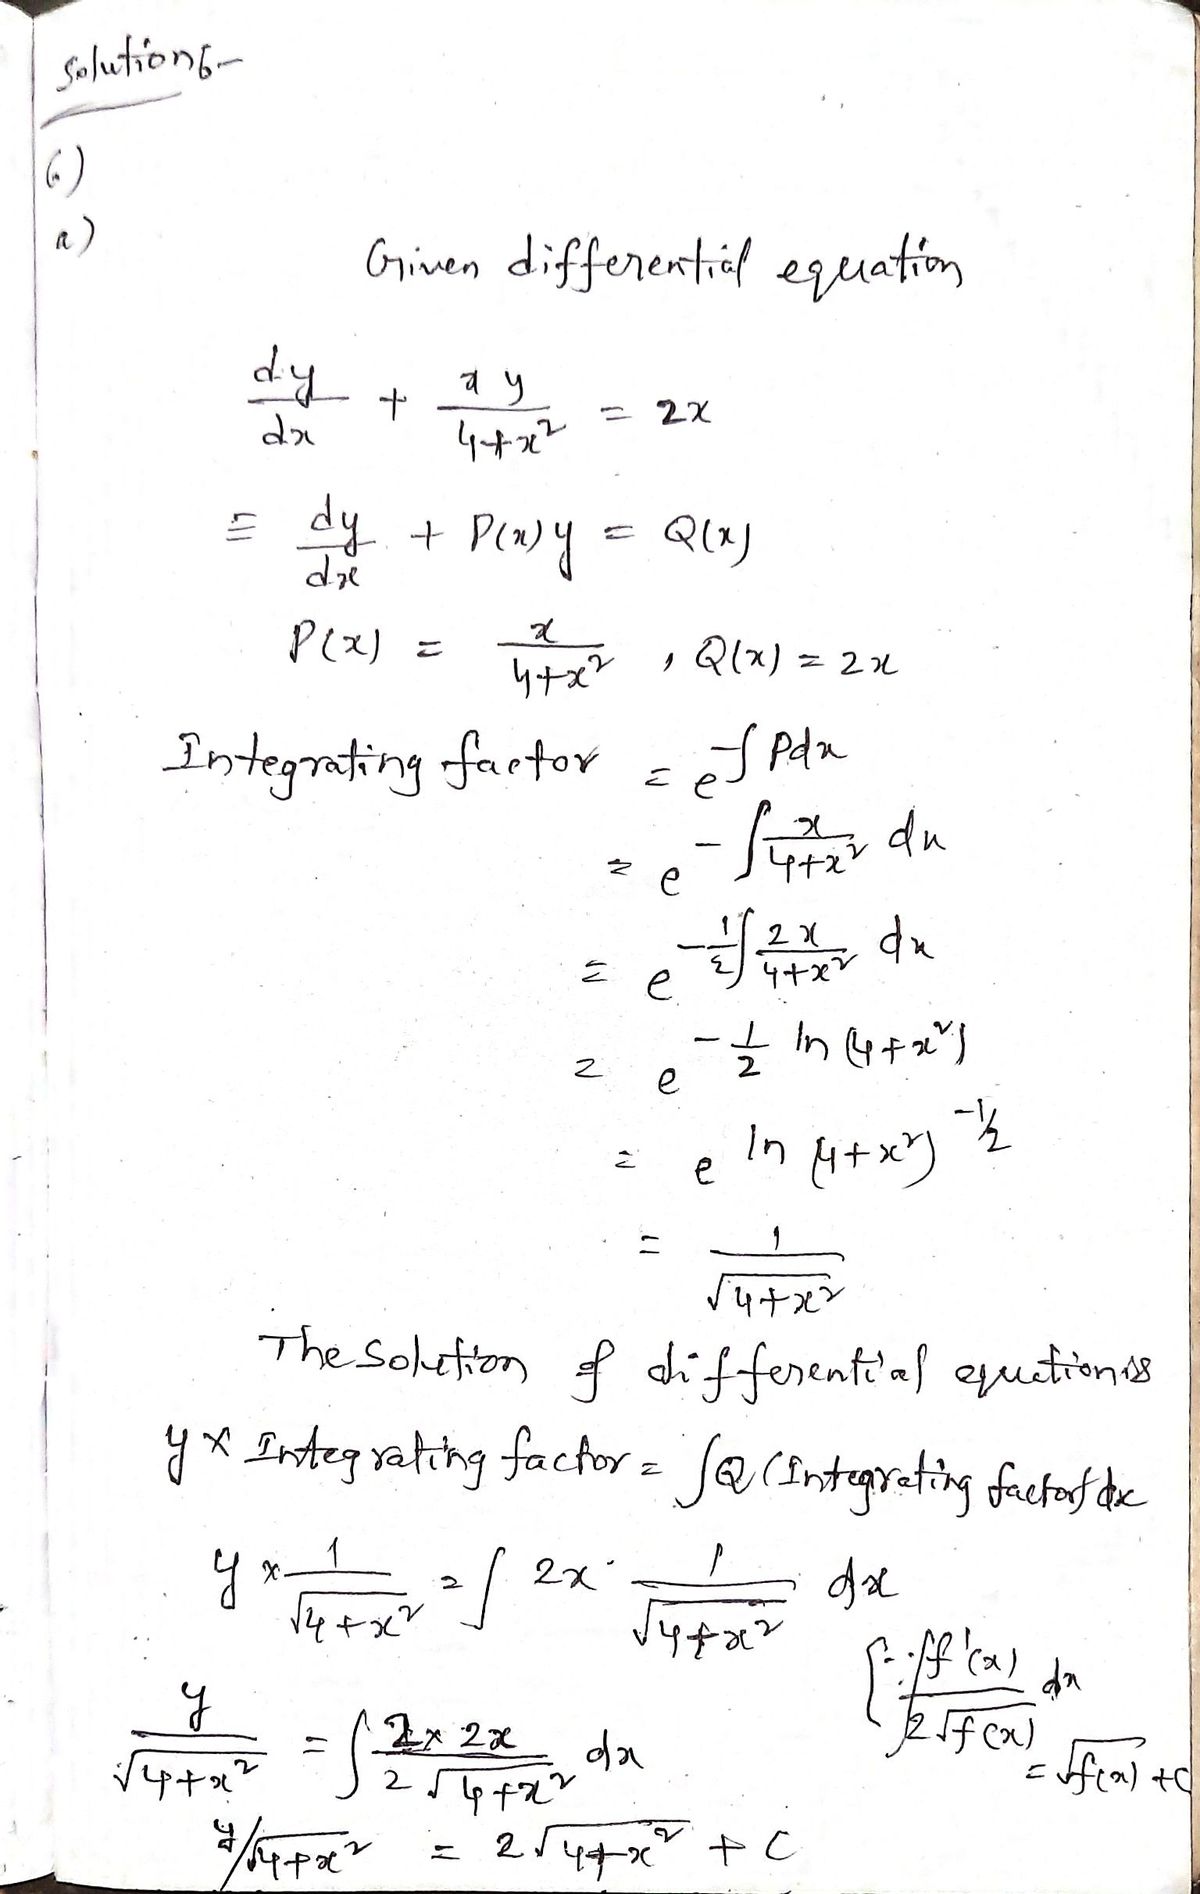 Solution:-
6)
a)
Given differential equation
dy/dx + xy/(4+x²) = 2x
≡ dy/dx + P(x)y = Q(x)
P(x) = x/(4+x²) , Q(x) = 2x
Integrating factor = e^(-∫Pdx)
= e^(-∫ x/(4+x²) dx)
= e^(-1/2 ∫ 2x/(4+x²) dx)
= e^(-1/2 ln (4+x²))
= e^(ln (4+x²)^(-1/2))
= 1/√(4+x²)
The Solution of differential equction is
y × Integrating factor = ∫Q (Integrating factor) dx
y × 1/√(4+x²) = ∫ 2x · 1/√(4+x²) dx
{∵ ∫ f'(x)/(2√f(x)) dx
= √f(x) + C
y/√(4+x²) = ∫ (2 × 2x)/(2√(4+x²)) dx
y/√(4+x²) = 2√(4+x²) + C